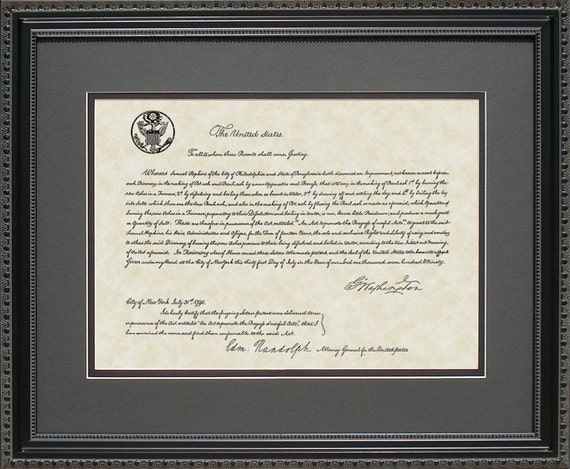 The United States.
To all to whom these Presents shall come, Greeting.
Whereas Samuel Hopkins of the City of Philadelphia and State of Pensylvania hath discovered an Improvement, not known or used before
such Discovery, in the making of Pot ash and Pearl ash by a new Apparatus and Process, that is to say, in the making of Pearl ash 1st by burning the
raw Ashes in a Furnace, 2d by dissolving and boiling them when so burnt in Water, 3rd by drawing off and settling the ley, and 4th by boiling the ley
into Salts which then are the true Pearl ash, and also in the making of Pot ash by fluxing the Pearl ash so made as aforesaid, which Operation of
burning the raw Ashes in a Furnace, preparatory to their Dissolution and boiling in Water, is new, leaves little Residuum; and produces a much greater
Quantity of Salt: These are therefore in pursuance of the Act, entitled "An Act to promote the Progress of useful Arts", to grant to the said
Samuel Hopkins, his Heirs, Administrators and Assigns, for the Term of fourteen Years, the sole and exclusive Right and Liberty of using and vending
to others the said Discovery of burning the raw Ashes previous to their being dissolved and boiled in Water, according to the true Intent and meaning
of the Act aforesaid. In Testimony whereof I have caused these Letters to be made patent, and the Seal of the United States to be hereunto affixed
Given under my Hand at the City of New York this thirty first Day of July in the Year of our Lord one thousand seven hundred & Ninety.
G. Washington
City of New York July 31st 1790.
I do hereby Certify that the foregoing Letters patent were delivered to me
in pursuance of the Act, entitled "An Act to promote the Progress of useful Arts", that I
have examined the same, and find them conformable to the said Act.
Edm. Randolph Attorney General for the United States.